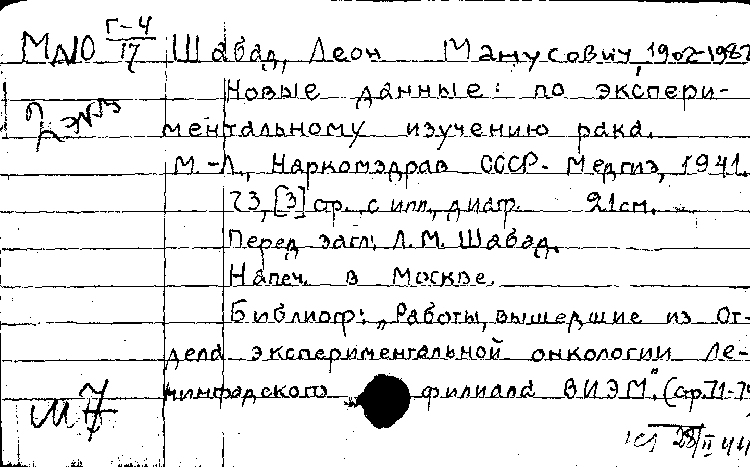 Г-4
17
Шабад, Леон Манусович, 1902-1982
Новые данные: по экспери-
ментальному изучению рака.
М.-Л., Наркомздрав СССР - Медгиз, 1941.
73, [3] стр. с илл., диагр. 21см.
Перед загл.: Л. М. Шабад.
Напеч. в Москве.
Библиогр: „Работы, вышедшие из От-
дела экспериментальной онкологии Ле-
нинградского филиала ВИЭМ". (стр. 71-74
28/II 44